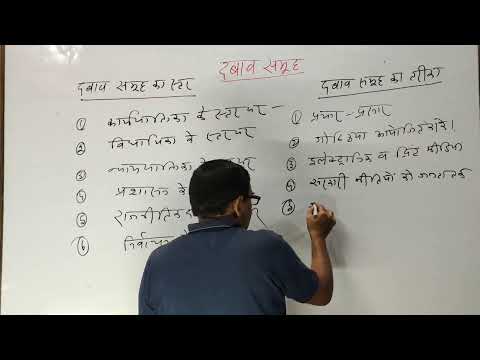 दबाव समूह
दबाव समूह का स्तर
① कार्यपालिका के स्तर पर -
② विधायिका के स्तर पर
③ न्यायपालिका के स्तर पर
④ प्रशासन के
⑤ राजनीतिक
⑥ निर्वाचन
दबाव समूह का तरीका
① प्रचार - प्रसार
② गोष्ठियां आयोजित करने।
③ इलेक्ट्रानिक व प्रिंट मीडिया
④ सरकारी नीतियों को
⑤